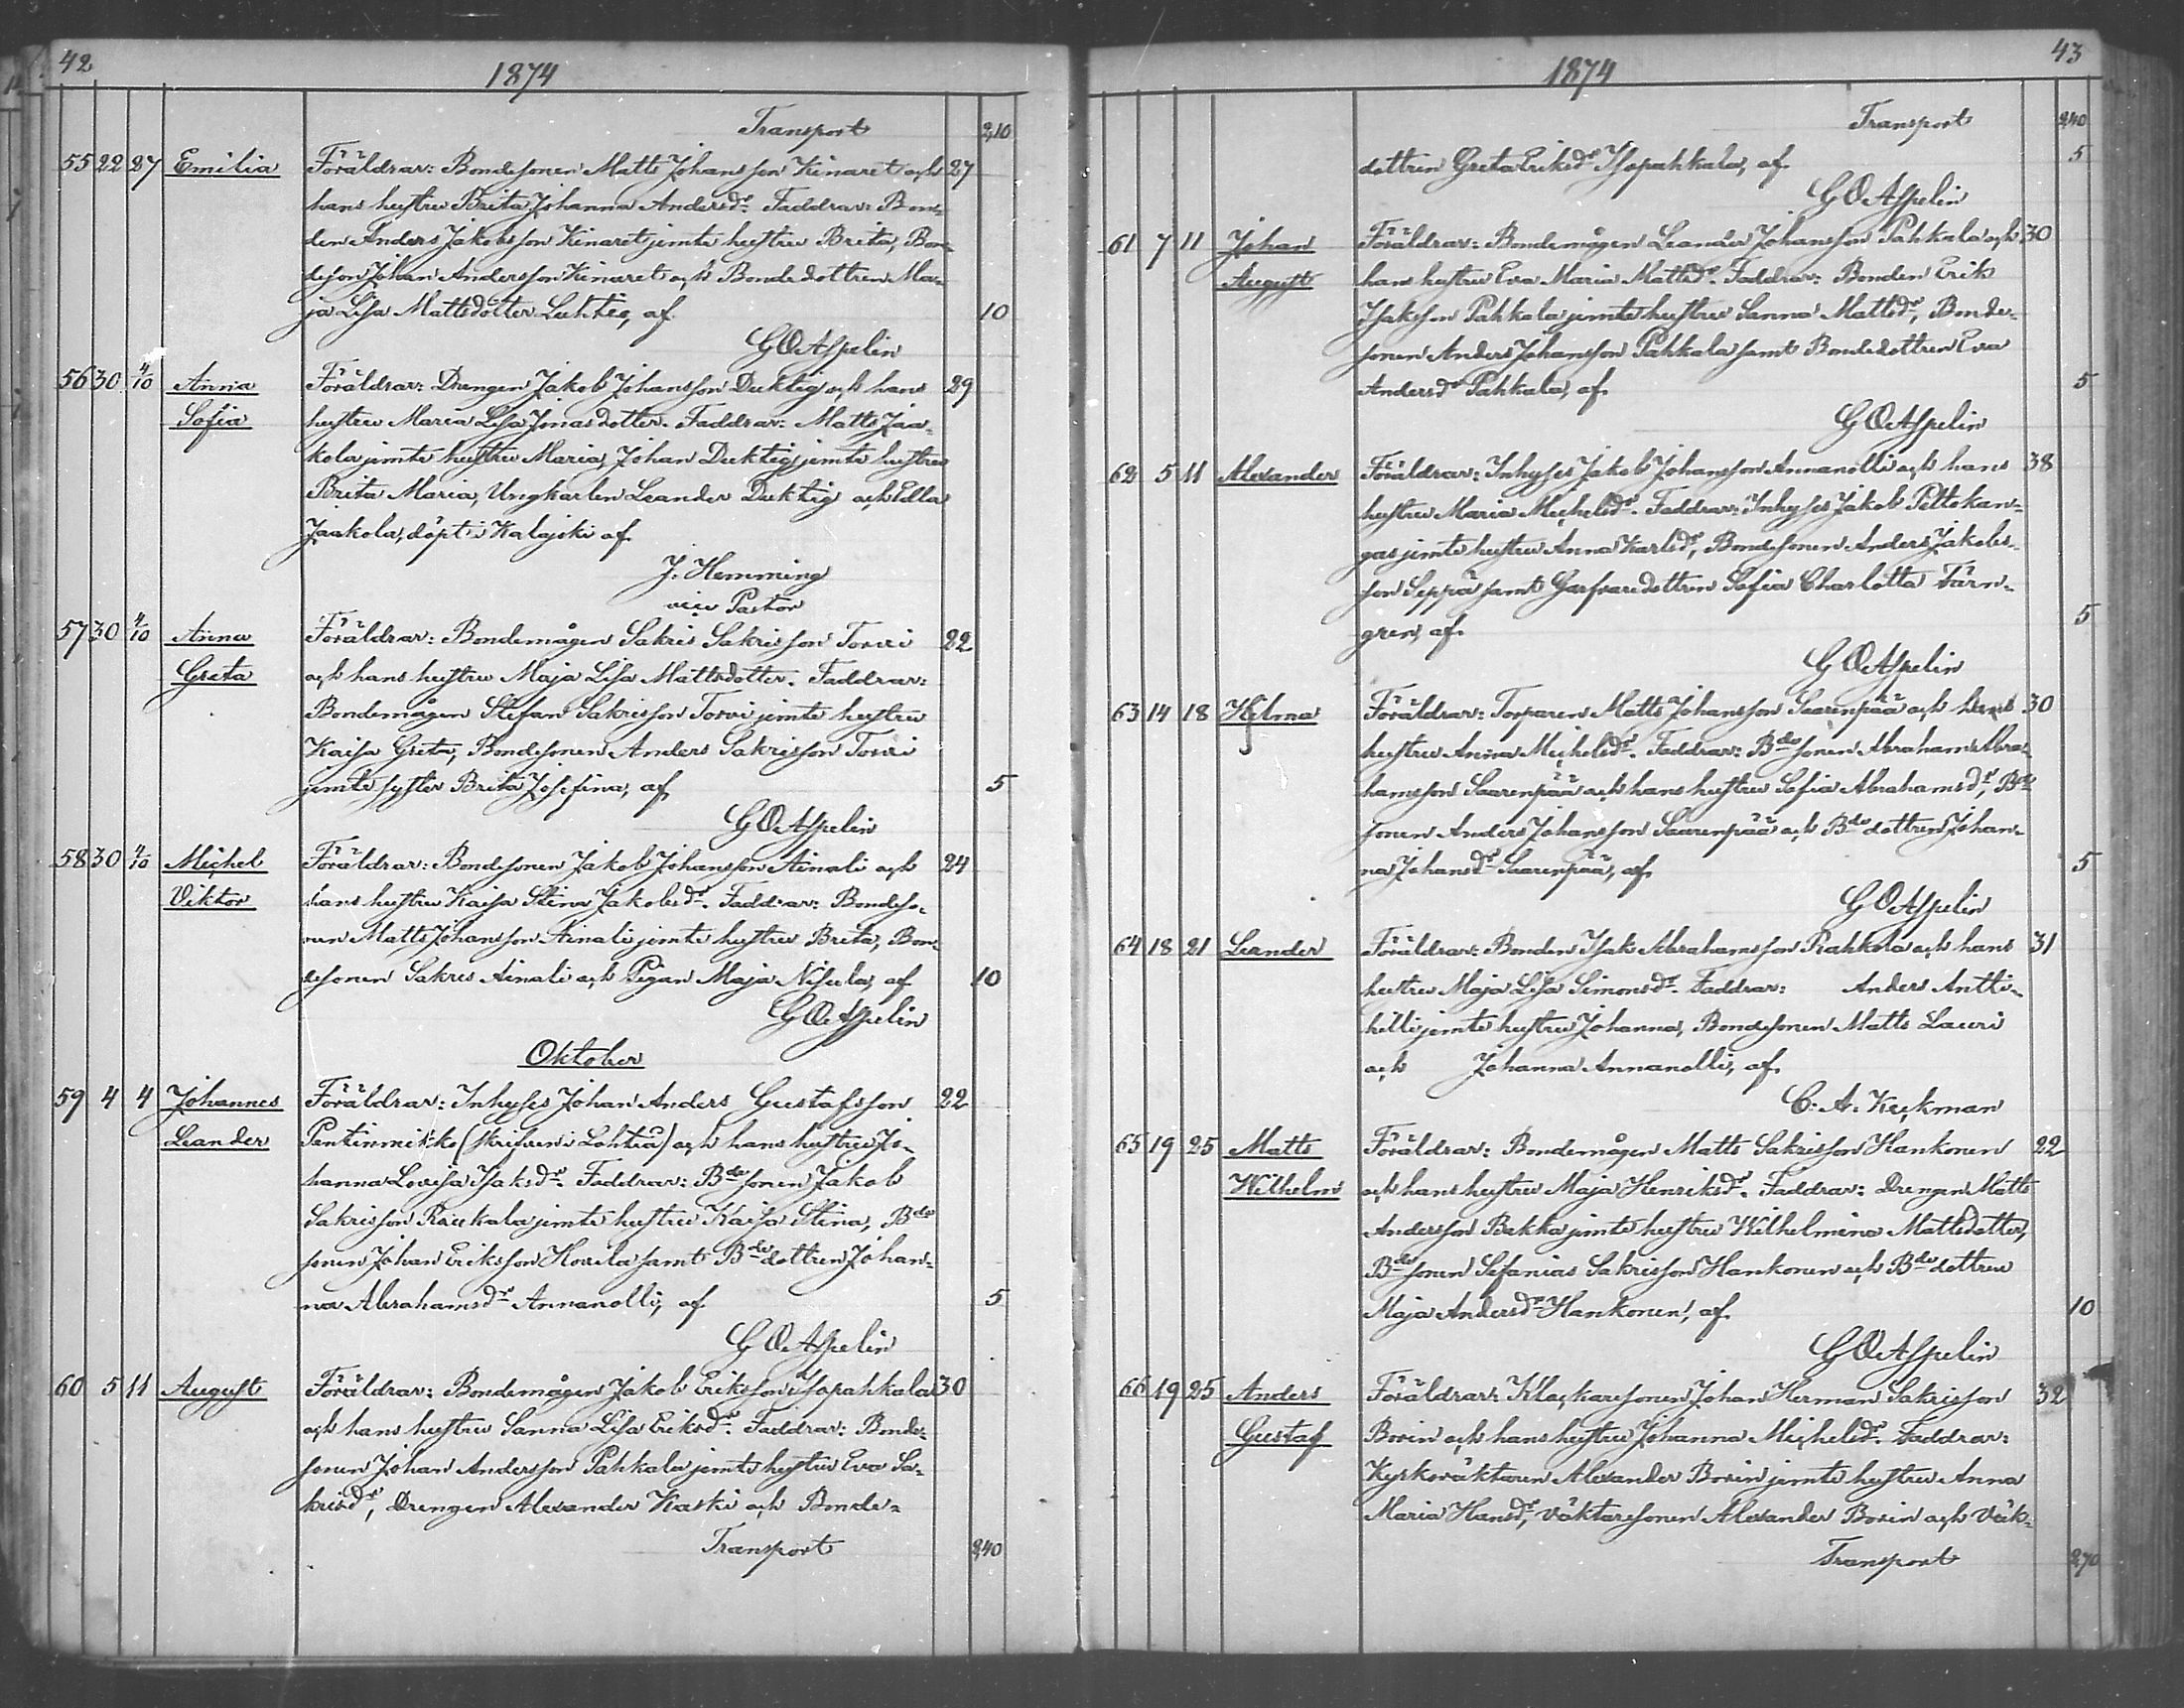 42
1874
Transport 2,10
55 22 27 Emilia Föräldrar: Bondesonen Matts Johansson Kinaret och 27
hans hustru Brita Johanna Andersdr. Faddrar: Bon-
den Anders Jakobsson Kinaret jemte hustru Brita, Bon-
deson Johan Andersson Kinaret och Bondedottren Ma-
ja Lisa Mattsdotter Luhtio, af 10
G O Aspelin
56 30 4/10 Anna Föräldrar: Drengen Jakob Johansson Duktig och hans 29
Sofia hustru Maria Lisa Jonasdotter. Faddrar: Matts Jaa-
kola jemte hustru Maria, Johan Duktig jemte hustru
Brita Maria, Ungkarlen Leander Duktig och Ulla
Jaakola, döpt i Kalajoki af
J. Hemming
vice Pastor
57 30 4/10 Anna Föräldrar: Bondemågen Sakris Sakrisson Torvi 22
Greta och hans hustru Maja Lisa Mattsdotter. Faddrar:
Bondemågen Stefan Sakrisson Torvi jemte hustru
Kaisa Greta, Bondesonen Anders Sakrisson Torvi
jemte syster Brita Josefina, af 5
G O Aspelin
58 30 4/10 Michel Föräldrar: Bondesonen Jakob Johansson Ainali och 24
Viktor hans hustru Kaisa Stina Jakobsdr. Faddrar: Bondeso-
nen Matts Johansson Ainali jemte hustru Brita, Bon-
desonen Sakris Ainali och Pigan Maja Nisula, af 10
G O Aspelin
Oktober
59 4 4 Johannes Föräldrar: Inhyses Johan Anders Gustafsson 22
Leander Pentinmikko (skrifven i Lohteå) och hans hustru Jo-
hanna Lovisa Isaksdr. Faddrar: Bde sonen Jakob
Sakrisson Raukala jemte hustru Kaisa Stina, Bde
sonen Johan Eriksson Hovila samt Bde dottren Johan-
na Abrahamsdr Annanolli, af 5
G O Aspelin
60 5 11 August Föräldrar: Bondemågen Jakob Eriksson Isopahkala 30
och hans hustru Sanna Lisa Eriksdr. Faddrar: Bonde-
sonen Johan Andersson Pahkala jemte hustru Eva Sa-
krisdr, Drengen Alexander Kaski och Bonde-
Transport 2,40
43
1874
Transport 2,40
dottren Greta Eriksdr Isopahkala, af 5
G O Aspelin
61 7 11 Johan Föräldrar: Bondemågen Leander Johansson Pahkala och 30
August hans hustru Eva Maria Mattsdr. Faddrar: Bonden Erik
Isaksson Pahkala jemte hustru Sanna Mattsdr, Bonde-
sonen Anders Johansson Pahkala samt Bondedottren Eva
Andersdr Pahkala, af 5
G O Aspelin
62 5 11 Alexander Föräldrar: Inhyses Jakob Johansson Annanolli och hans 38
hustru Maria Michelsdr. Faddrar: Inhyses Jakob Peltokan-
gas jemte hustru Anna Karlsdr, Bondesonen Anders Jakobs-
son Seppä samt Garfvaredottren Sofia Charlotta Färn-
gren, af 5
G O Aspelin
63 14 18 Hilma Föräldrar: Torparen Matts Johansson Saarenpää och hans 30
hustru Anna Michelsdr. Faddrar: Bde sonen Abraham Abra-
hamsson Saarenpää och hans hustru Sofia Abrahamsdr, Bde
sonen Anders Johansson Saarenpää och Bde dottren Johan-
na Johansdr Saarenpää, af 5
G O Aspelin
64 18 21 Leander Föräldrar: Bonden Isak Abrahamsson Rahkola och hans 31
hustru Maja Lisa Simonsdr. Faddrar: Anders Antti-
hilli jemte hustru Johanna, Bondesonen Matts Lauri
och Johanna Annanolli, af
C. A. Keckman
65 19 25 Matts Föräldrar: Bondemågen Matts Sakrisson Hankonen 22
Wilhelm och hans hustru Maja Henriksdr. Faddrar: Drengen Matts
Andersson Bekka jemte hustru Wilhelmina Mattsdotter,
Bde sonen Sefanias Sakrisson Hankonen och Bde dottren
Maja Andersdr Hankonen, af 10
G O Aspelin
66 19 25 Anders Föräldrar: Klockaresonen Johan Herman Sakrisson 32
Gustaf Borin och hans hustru Johanna Michelsdr. Faddrar:
Kyrkoväktaren Alexander Borin jemte hustru Anna
Maria Hansdr, Väktaresonen Alexander Borin och Väk-
Transport 2,70